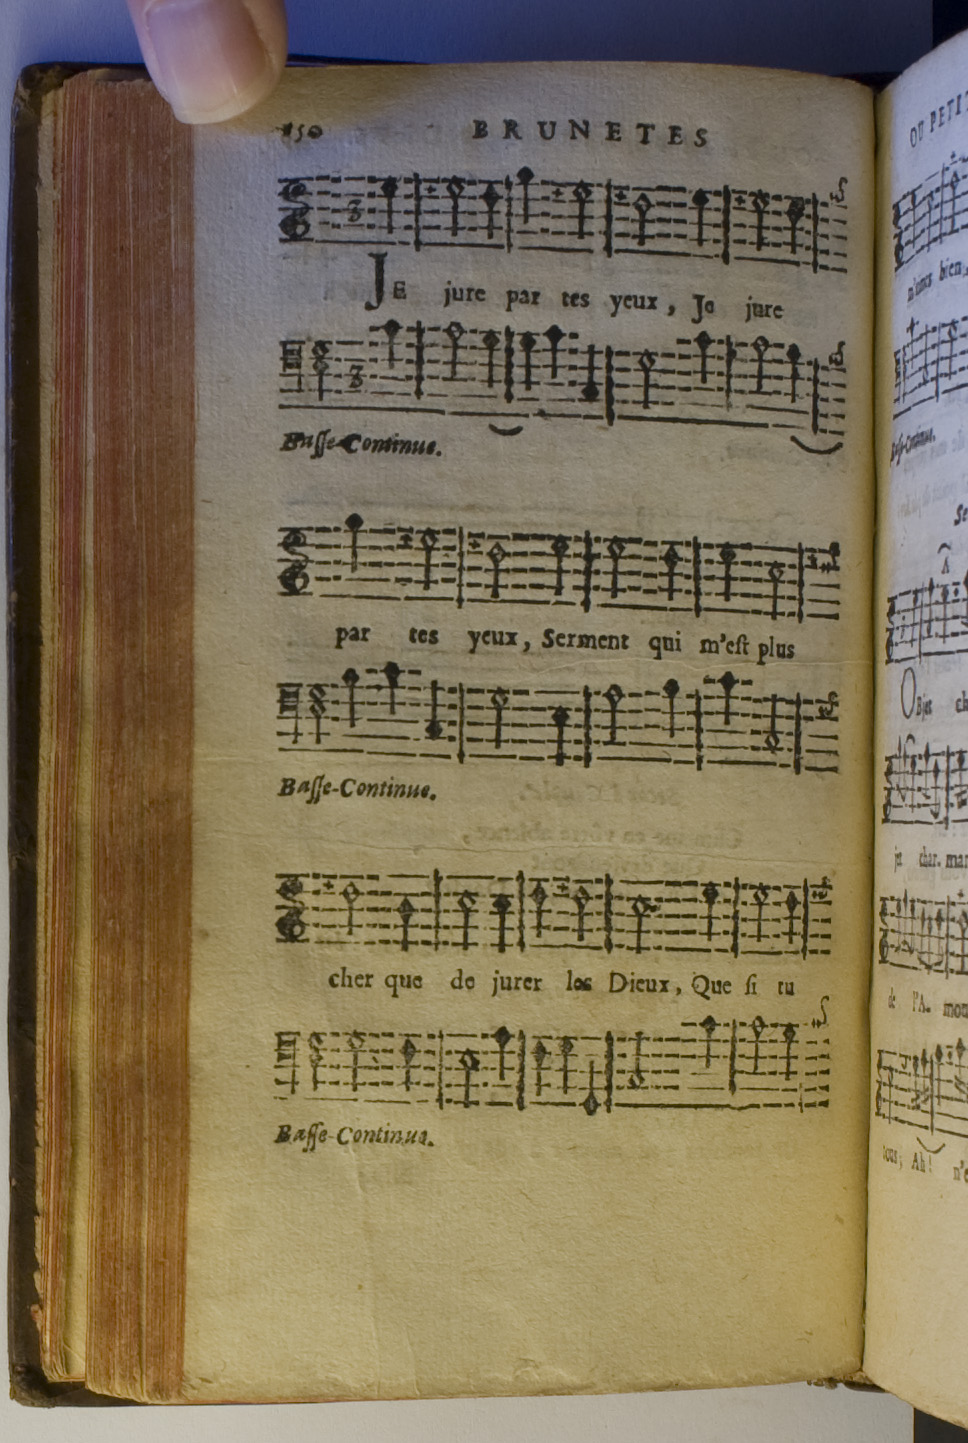 150 BRUNETES
JE jure par tes yeux, Je jure
Basse-Continue.
par tes yeux, Serment qui m'est plus
Basse-Continue.
cher que de jurer les Dieux, Que si tu
Basse-Continue.
OU PETIT
bien,
Basse-Continue.
OBjet
char. man
de l'A. mou
Ah! n'e